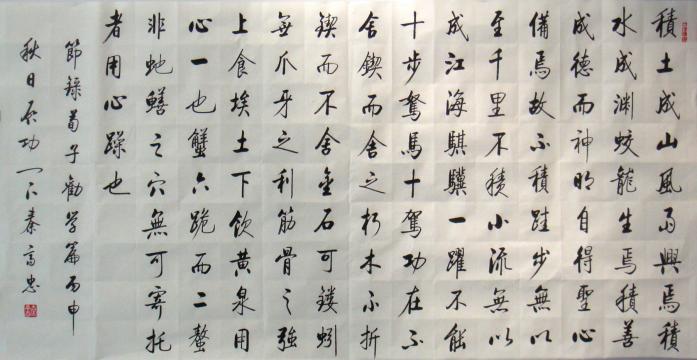 積土成山風雨興焉積
水成渊蛟龍生焉積善
成德而神明自得聖心
備焉故不積跬步無以
至千里不積小流無以
成江海騏驥一躍不能
十步駑馬十駕功在不
舍鍥而舍之朽木不折
鍥而不舍金石可鏤蚓
無爪牙之利筋骨之强
上食埃土下飲黄泉用
心一也蟹六跪而二螯
非虵鱔之穴無可寄托
者用心躁也
節録荀子勸学篇丙申
秋日 秦高忠